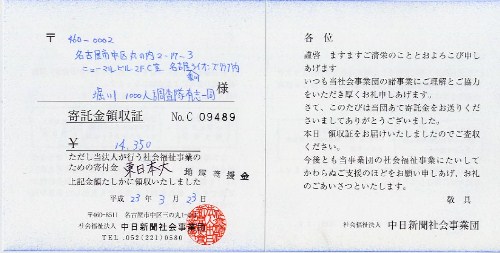 〒
460-0002
名古屋市中区丸の内2-17-3
堀川1000人調査隊有志一同 様
寄託金領収証 No.C 09489
¥ 14,350
ただし当法人が行う社会福祉事業の
ための寄付金 東日本大地震義援金
上記金額たしかに領収いたしました
平成 23年 3月 23日
〒460-8511 名古屋市中区三の丸
社会福祉法人 中日新聞社会事業団
TEL.052(221)0580
各位
謹啓 ますますご清栄のこととおよろこび申し
あげます
いつも当社会事業団の諸事業にご理解とご協力
をいただき厚くお礼申しあげます。
さて、このたびは当団あて寄託金をお送りくださ
いましてありがとうございました。
本日 領収証をお届けいたしましたのでご査収
ください。
今後とも当事業団の社会福祉事業にたいして
かわらぬご支援のほどをお願い申しあげ、お礼
のごあいさつといたします。
敬具
社会福祉法人 中日新聞社会事業団